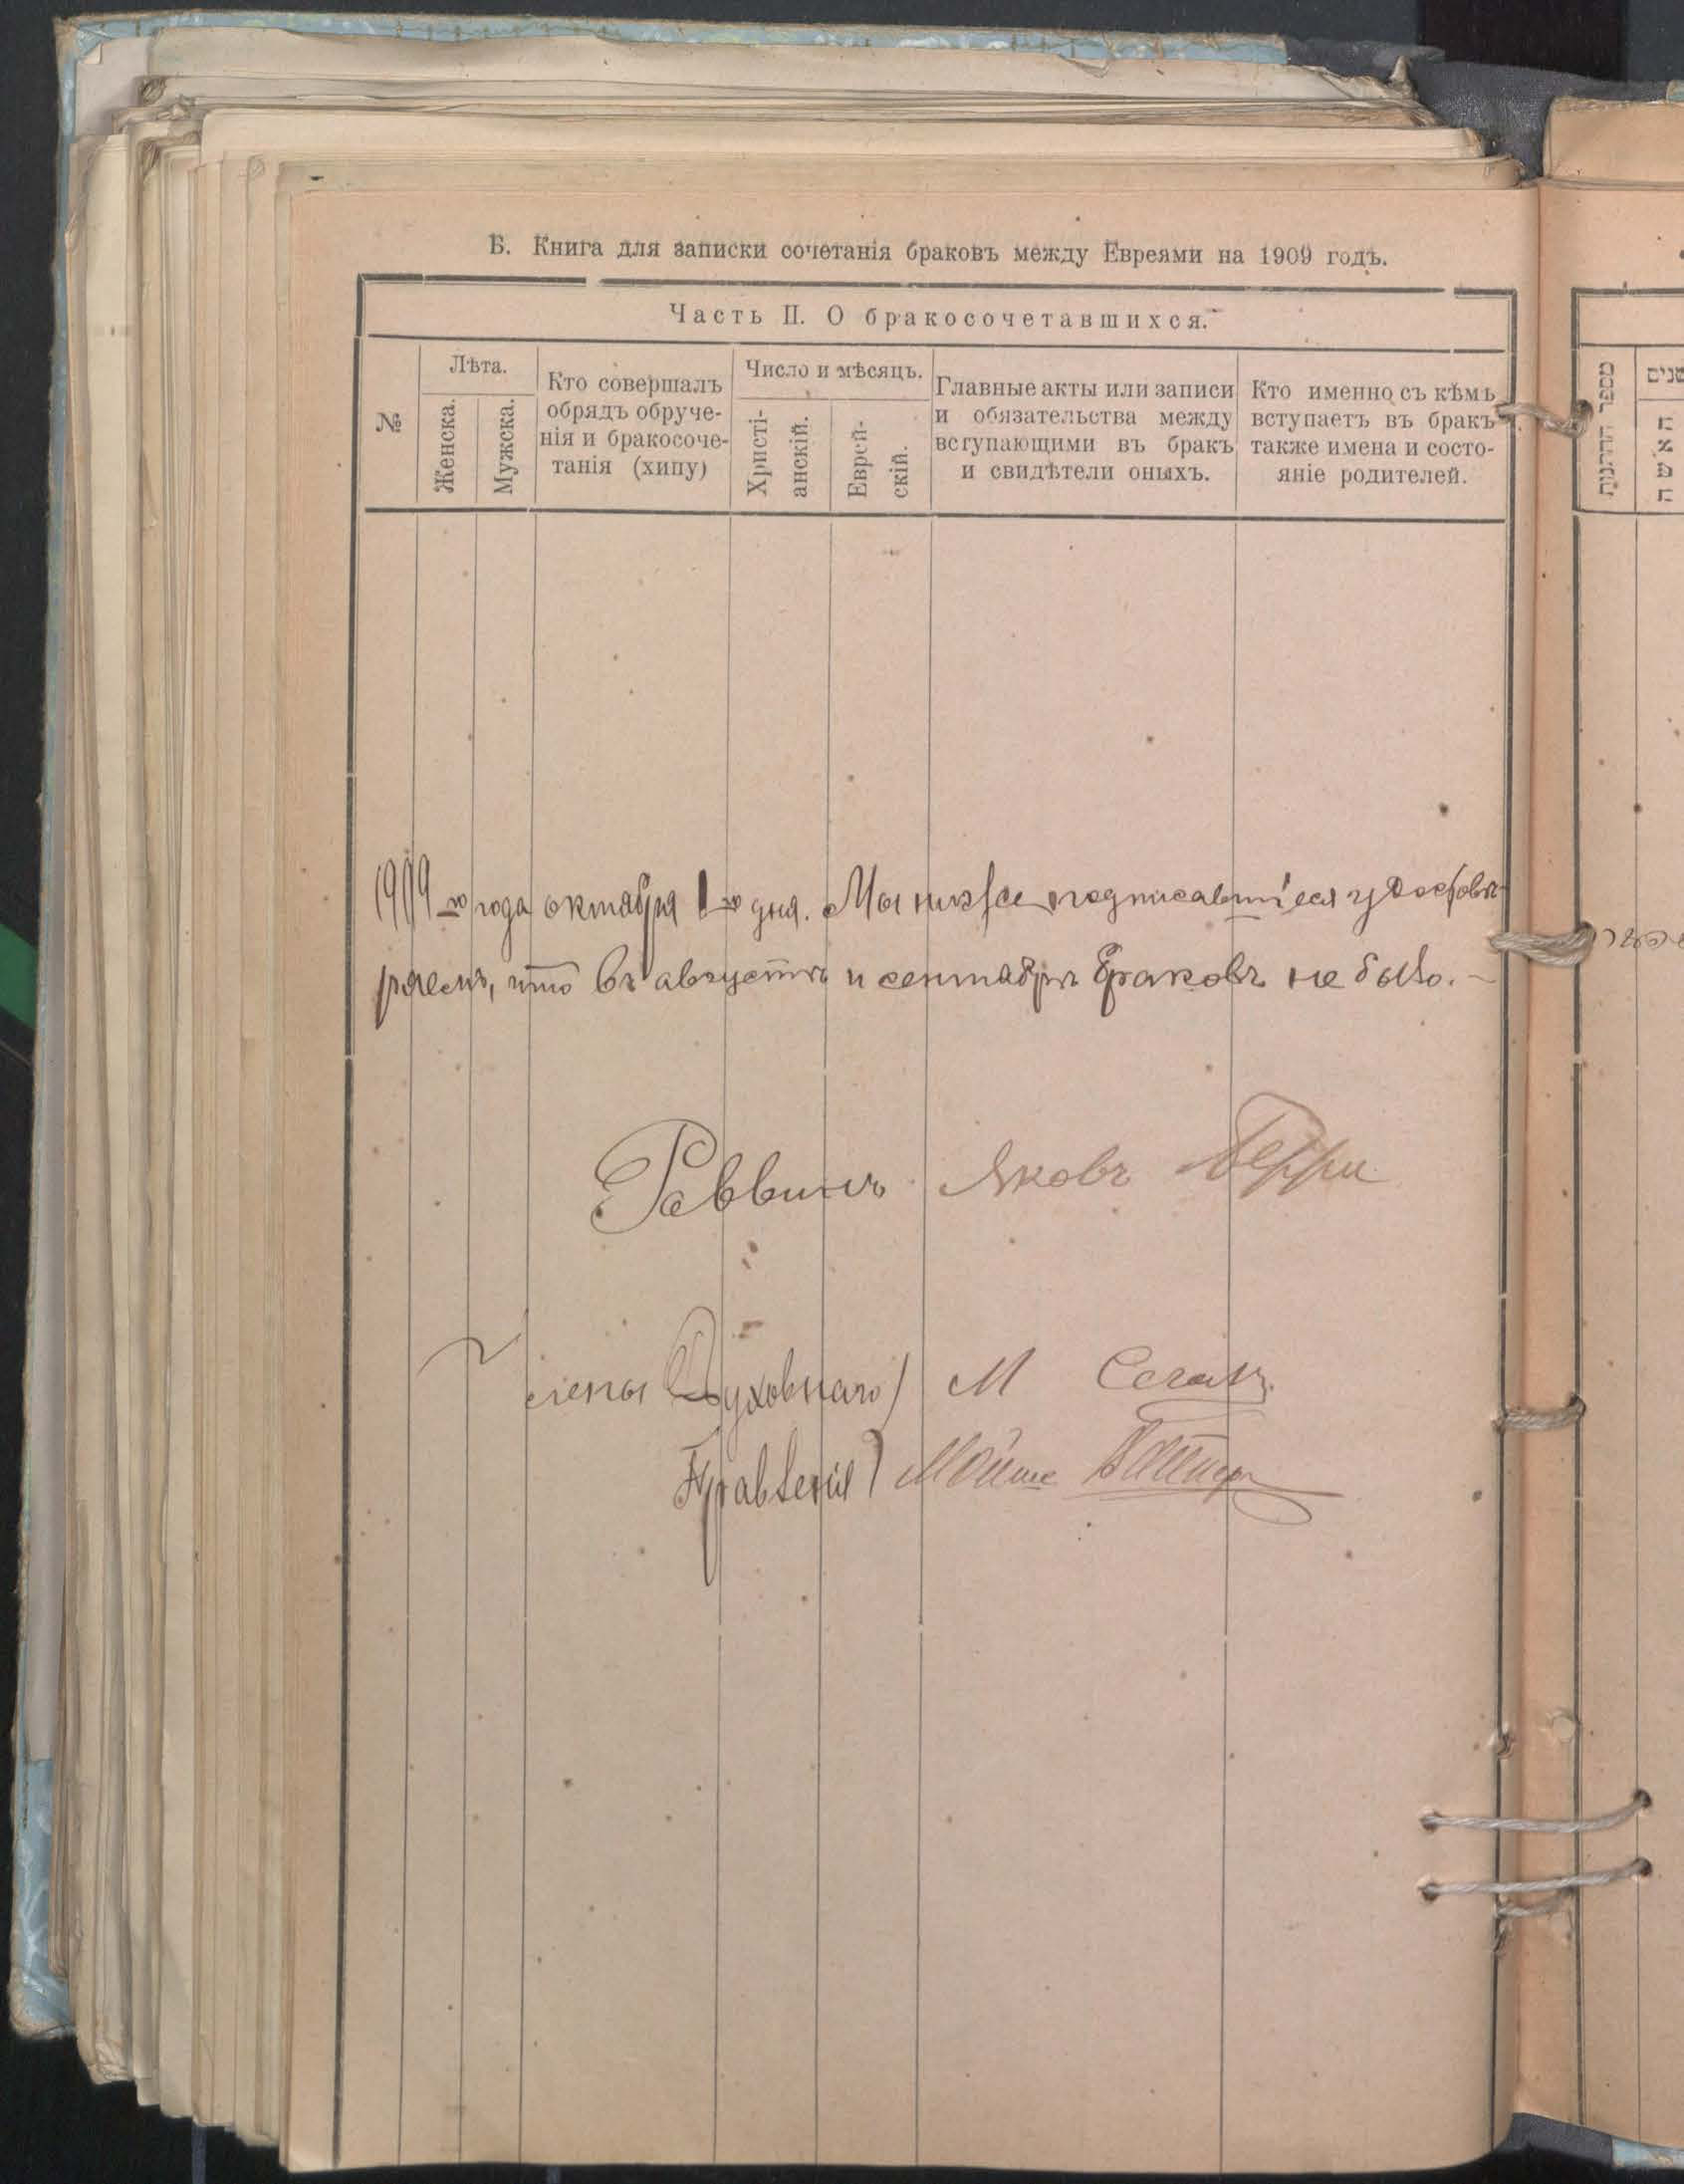 Б. Книга для записки сочетанія браковъ между Евреями на 1909 годъ.
Часть II. О бракосочетавшихся.
№
Лѣта.
Женска.
Мужска.
Кто совершалъ
обрядъ обруче-
нія и бракосоче-
танія (хипу)
Число и мѣсяцъ.
Христі-
анскій.
Еврей-
скій.
Главные акты или записи
и обязательства между
вступающими въ бракъ
и свидѣтели оныхъ.
Кто именно съ кѣмъ
вступаетъ въ бракъ
также имена и состо-
яніе родителей.
1909 го года октября 1 го дня. Мы нижеподписавшіеся удостовѣ-
ряемъ, что въ августѣ и сентябрѣ браковъ не было.-
Раввинъ Яковъ Берри
Члены Духовнаго) М Сегалъ
Правленія) Мойше
מספר החתונה
שנים
האשה